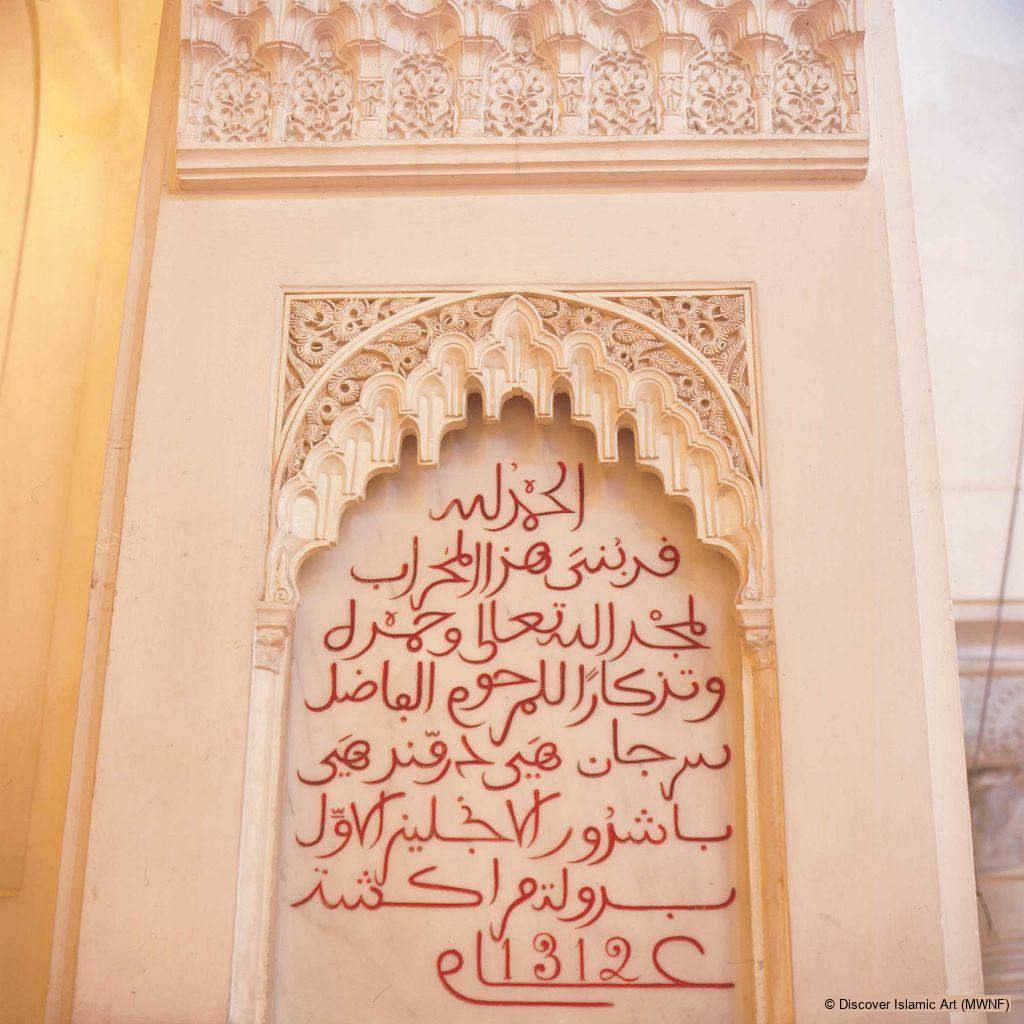 الحمد لله
قد بُنيَ هذا المحراب
لمجْد الله تعالى وحمده
وتذكارًا للمرحوم الفاضل
سرجان هَي درمّند هَي
باشدُور الانجليز الاوّل
بدولة مراكشة
عام 1312
© Discover Islamic Art (MWNF)